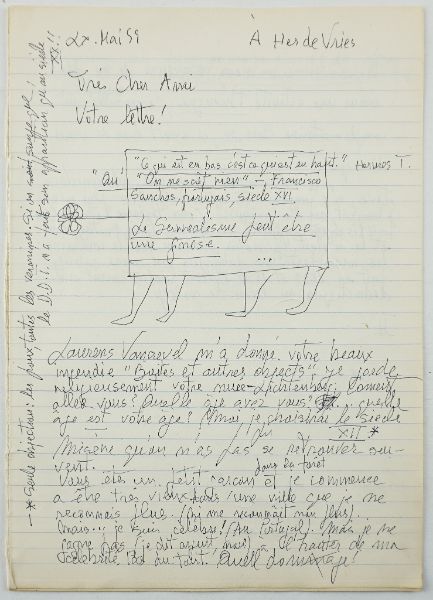 27. Mai 59 À Her de Vries
Très Cher Ami
Votre lettre!
"Ce qui est en bas c'est ce qui est en haut." Hermes I.
"Ou" "On ne sait rien" — Francisco
Sanches, portugais, siècle XVI.
Le Surréalisme peut être
une
...
Laurens Vancrevel m'a donné votre beaux
incendie "Bustes et autres objects", je garde
religieusement votre Comment
allez vous? Quelle âge avez vous? quelle
âge est votre âge? (Moi je choisirai le siècle
XII *
Misère qu'on n'as pas se retrouver sou-
vent.
Vous êtes un petit garçon et je commence
dans la forêt
a être très vieux dans une ville que je ne
reconnais plus. (Ni me reconnait non plus).
(mais... je suis célèbre! (Au Portugal). Mais je ne
gagne pas (je dit argent, moi) à la hauter de ma
célébrité. Pas du tout! Quelle dommage!
— * Seule objection: les poux, toutes les vermines
le D.D.T. n'a fait son apparition qu'au siècle
XX.!!